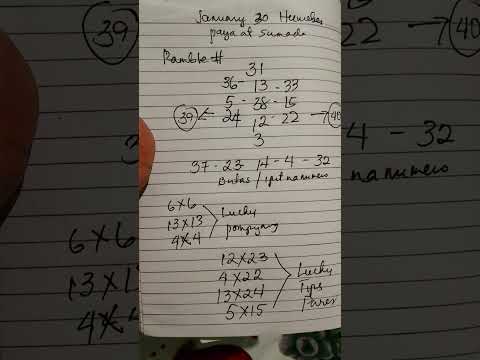 January 30 Huwebes
paya at Sumada
Ramble #
31
36 - 13 - 33
5 - 38 - 15
39 ← 24 12 - 22 → 40
3
37 - 23 - 14 - 4 - 32
Butas / ipit na numero
6x6
13x13
4x4
Lucky
pompyang
12x23
4x22
13x24
5x15
Lucky
Tips
Pares